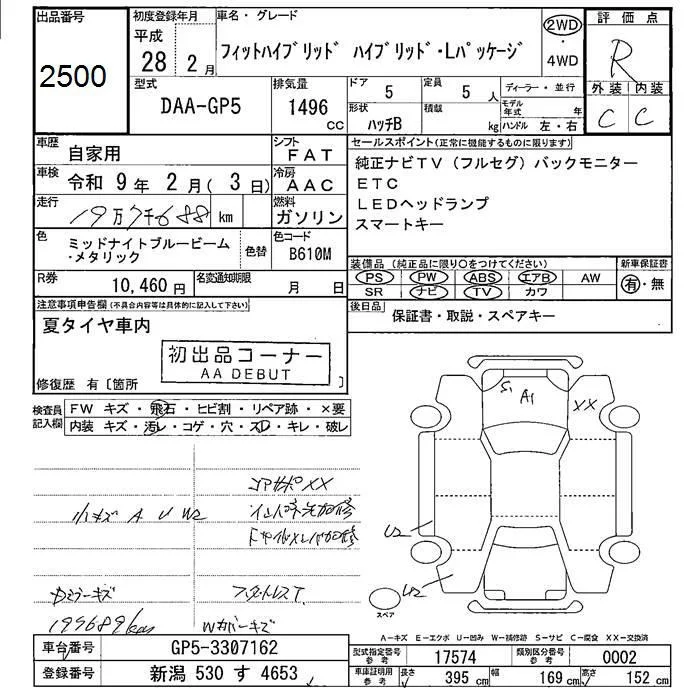 出品番号
2500
初度登録年月
平成
28年 2月
車名・グレード
フィットハイブリッド ハイブリッド・Lパッケージ
2WD
・
4WD
評価点
R
外装 内装
C C
型式
DAA-GP5
排気量
1496
cc
ドア
5
定員
5 人
ディーラー・並行
形状
ハッチB
積載
kg
モデル年式 年
ハンドル 左・右
車歴
自家用
シフト
FAT
車検
令和 9年 2月(3日)
冷房
AAC
走行
km
燃料
ガソリン
色
ミッドナイトブルービーム
・メタリック
色替
色コード
B610M
R券
10,460円
名変通知期限
月 日
セールスポイント(正常に機能するものに限ります)
純正ナビTV(フルセグ)バックモニター
ETC
LEDヘッドランプ
スマートキー
装備品(純正品に限り○をつけてください)
PS PW ABS エアB AW
SR ナビ TV カワ
新車保証書
有・無
後日品
保証書・取説・スペアキー
注意事項申告欄(不具合内容等は具体的に記入して下さい)
夏タイヤ車内
初出品コーナー
AA DEBUT
修復歴 有〔箇所 〕
検査員記入欄
FW キズ・飛石・ヒビ割・リペア跡・×要
内装 キズ・汚レ・コゲ・穴・スレ・キレ・破レ
コアサポXX
小キズ A U W2
インパネ先加修
Dミラーキズ
199689km
Wカバーキズ
S1
A1
XX
U2
U2
スペア
A-キズ E-エクボ U-凹み W-補修跡 S-サビ C-腐食 XX-交換済
車台番号
GP5-3307162
登録番号
新潟 530 す 4653
型式指定番号
参考
17574
類別区分番号
参考
0002
車庫証明用
参考
長さ
395 cm
幅
169 cm
高さ
152 cm